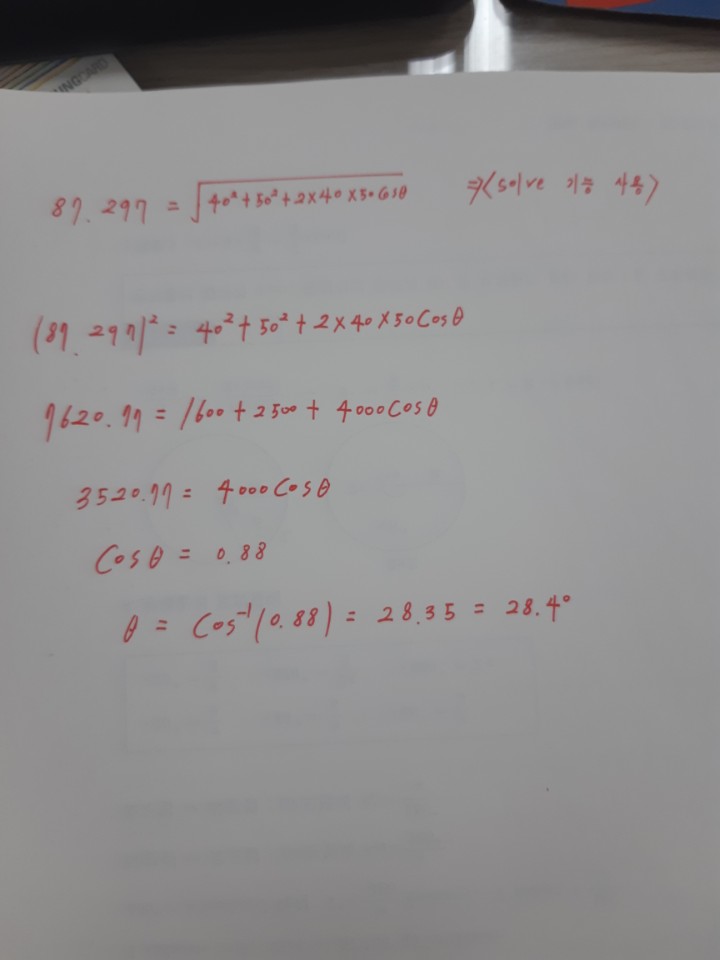 UNGCARD
87.297 = √40²+50²+2×40×50Cosθ ⇒(solve 기능 사용)
(87.297)² = 40²+50²+2×40×50Cosθ
7620.77 = 1600+2500+ 4000Cosθ
3520.77 = 4000Cosθ
Cosθ = 0.88
θ = Cos⁻¹(0.88) = 28.35 = 28.4°